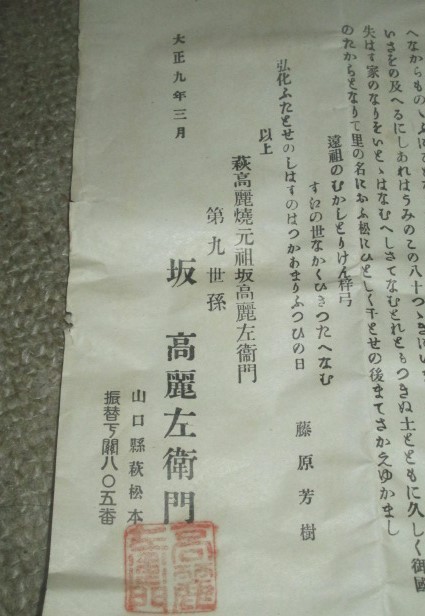 いさをの及へるにしあれはうみのこの八十つゝきに
失はす家のなりをいとゝはなむへしさてなむとれともつきぬ土とともに久しく御國
のたからとなりて里の名におふ松にひとしく千とせの後まてさかえゆかまし
遠祖のむかしとりけん梓弓
す江の世なかくひきつたへなむ
弘化ふたとせのしはすのはつかあまりふつひの日 藤原芳樹
以上
萩高麗燒元祖坂高麗左衞門
第九世孫
大正九年三月
坂 高麗左衞門
山口縣萩松本
振替下關八〇五番
高麗
左衞門